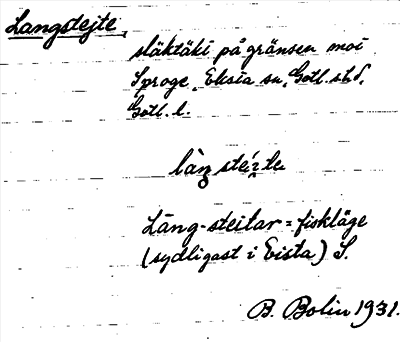 Langstejte,
släktäki på gränsen moi
Sproge, Eksta sn, Gotl. s.hd,
Gotl. l.
làŋ steı́te
Läng-steitar = fiskläge
(sydligast i Eista) S.
B. Bolin 1931.